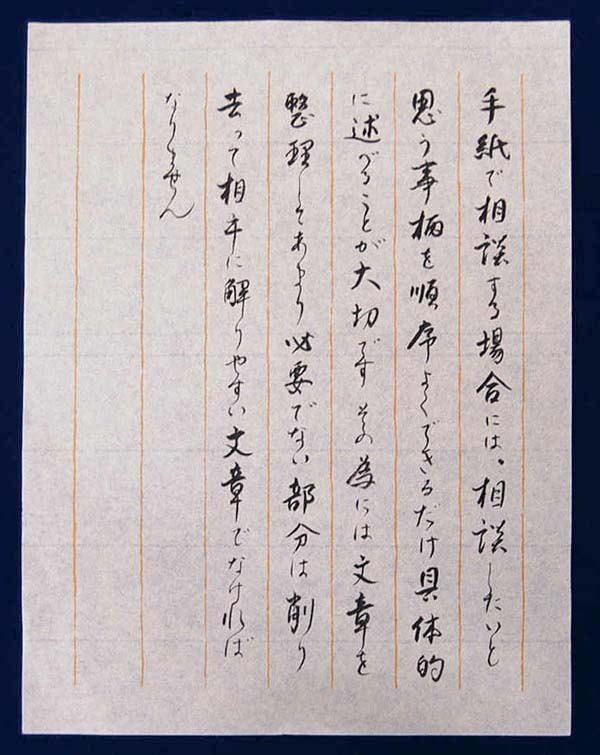 手紙で相談する場合には、相談したいと
思う事柄を順序よくできるだけ具体的
に述べることが大切です その為には文章を
整理しあまり必要でない部分は削り
去って相手に解りやすい文章でなければ
なりません